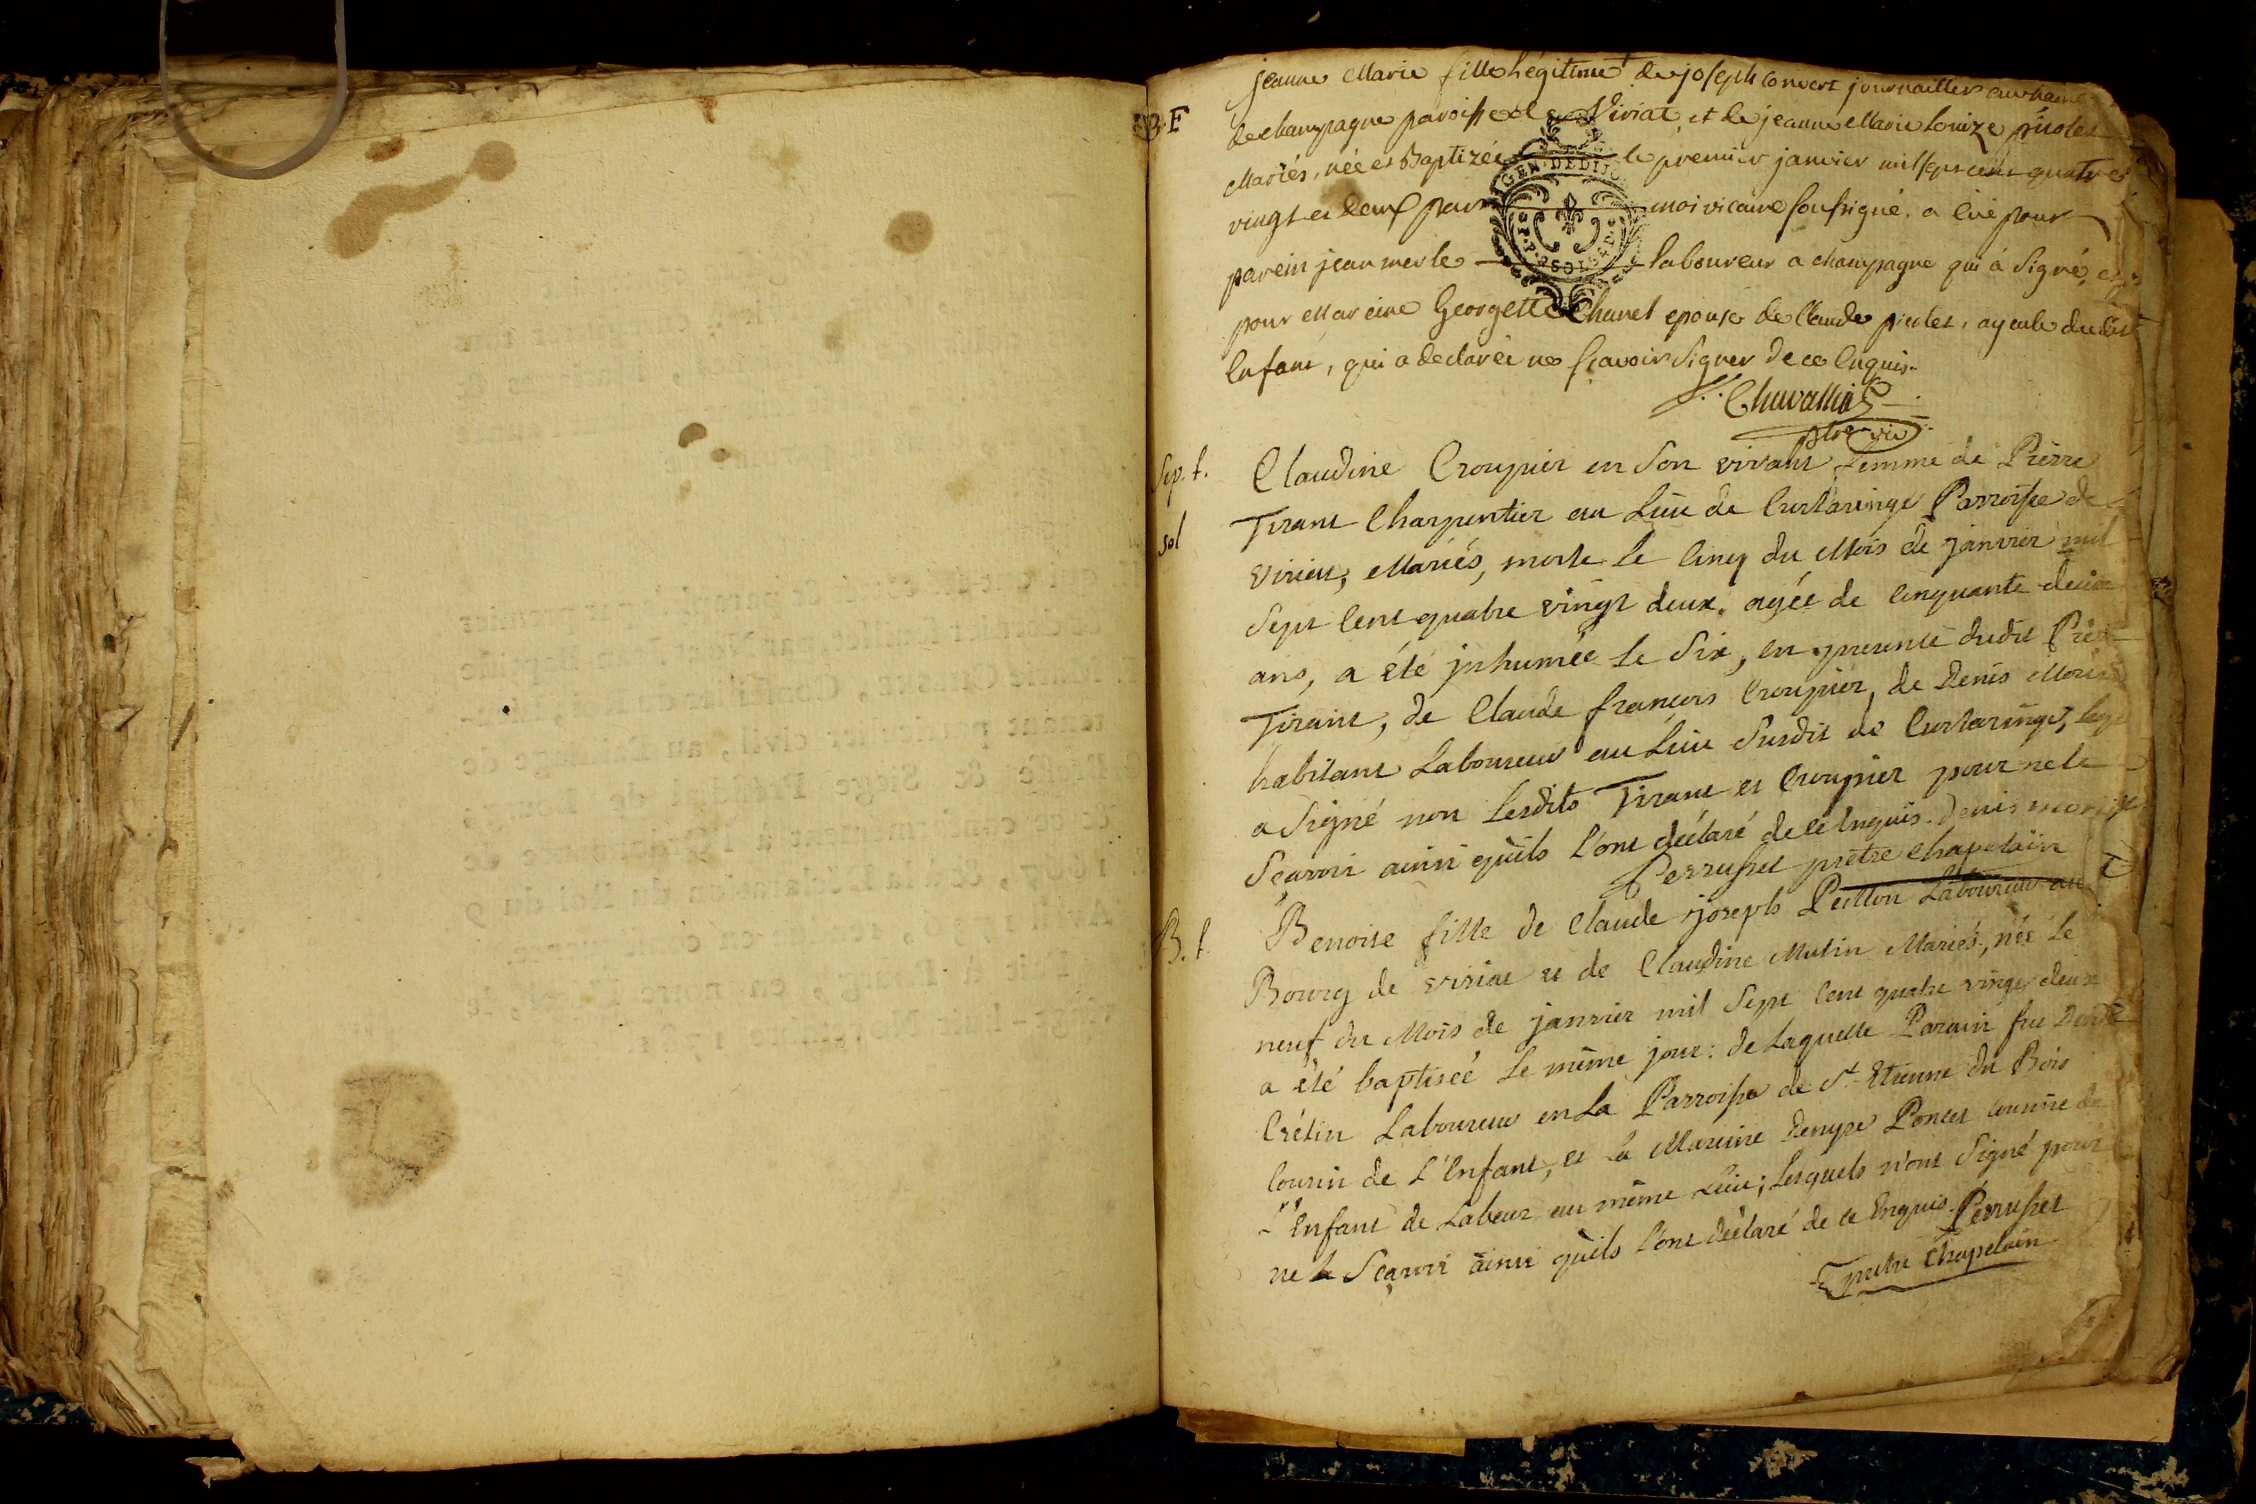 B. F
jeanne Marie fille légitime de joseph convert journaillier au hameau
de champagne paroisse de Viriat, et de jeanne Marie louize piroles
Mariés, née et Baptizée le premier janvier mil sept cent quatre
vingt et deux par moi vicaire soussigné, a eüe pour
parein jean merle laboureur a champagne qui à signé, et
pour Mareine Georgette Chanel epouse de Claude , ayeule dudit
Enfant, qui a declarée ne sçavoir signer de ce Enquis.
Chevallier
ptre vic
GEN. DE DIJON
SOL
Sep. f.
sol
Claudine Croupier en son vivant femme de Pierre
Tirant Charpentier au Lieu de Curtaringe Parroisse de
Viriat, Mariés, morte le Cinq du Mois de janvier mil
sept Cent quatre vingt deux, agée de Cinquante deux
ans, a été inhumée le Six, en presence dudit Pierre
Tirant, de Claude françois Croupier, de Denis Morin
habitant Laboureur au Lieu susdit de Curtaringe,
a Signé non lesdits Tirant et Croupier pour ne le
Sçavoir ainsi qu'ils l'ont déclaré de ce Enquis. Denis
Perruset prêtre chapelain
B. f.
Benoite fille de Claude joseph Peitton Laboureur au
Bourg de viriat et de Claudine Mutin Mariés, née Le
neuf du Mois de janvier mil Sept Cent quatre vingt deux
a été baptisée le même jour: de Laquelle Parain fut Denis
Crétin Laboureur en La Parroisse de St Etienne du Bois
Cousin de L'Enfant, et la Mareine Denyse Poncet Cousine de
l'Enfant de Labeur au même Lieu; Lesquels n'ont Signé pour
ne le Sçavoir ainsi qu'ils l'ont déclaré de ce Enquis. Perruset
prêtre Chapelain